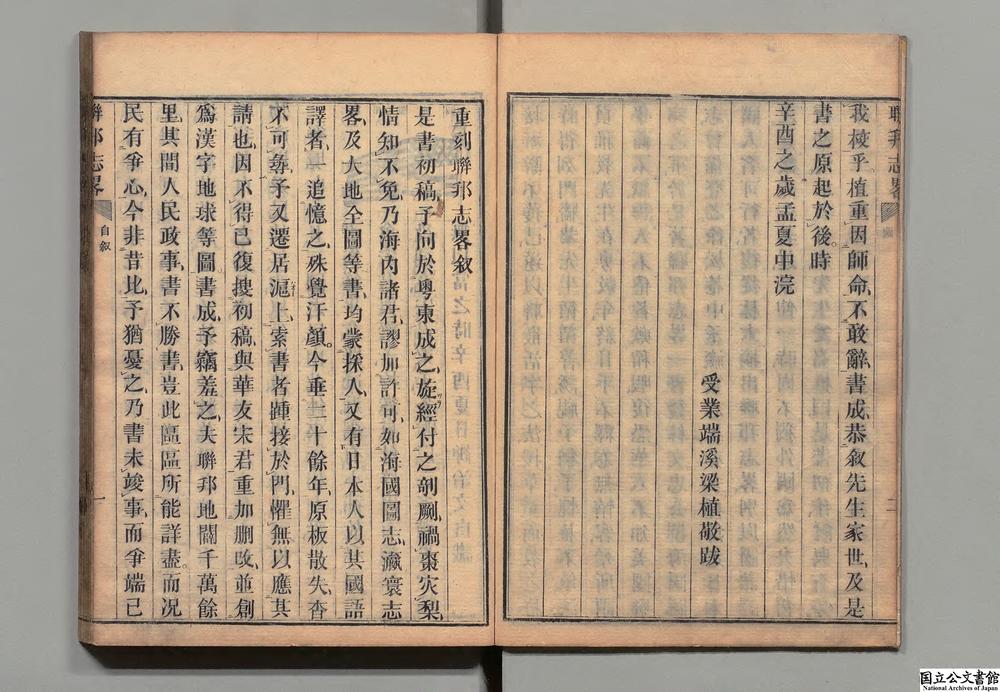 聯邦志畧
二
我梭乎。植重因師命、不敢辭、書成、恭叙先生家世、及是
書之原起於後。時
辛酉之歲孟夏中浣
受業端溪梁植敬跋
重刻聯邦志畧叙
是書初稿、予向於粵東成之、旋經付之剞劂、禍棗灾梨、
情知不免、乃海內諸君、謬加許可、如海國圖志、瀛寰志
畧、及大地全圖等書、均蒙採入、又有日本人以其國語
譯者、一追憶之、殊覺汗顏。今垂二十餘年、原板散失、杳
不可尋、予又遷居滬上、索書者踵接於門、懼無以應其
請也、因不得已復搜初稿、與華友宋君重加刪改、並創
為漢字地球等圖、書成、予竊羞之、夫聯邦地闊千萬餘
里、其間人民政事、書不勝書、豈此區區所能詳盡。而況
民有爭心、今非昔比、予猶憂之、乃書未竣事、而爭端已
聯邦志畧
自叙
一
国立公文書館
National Archives of Japan